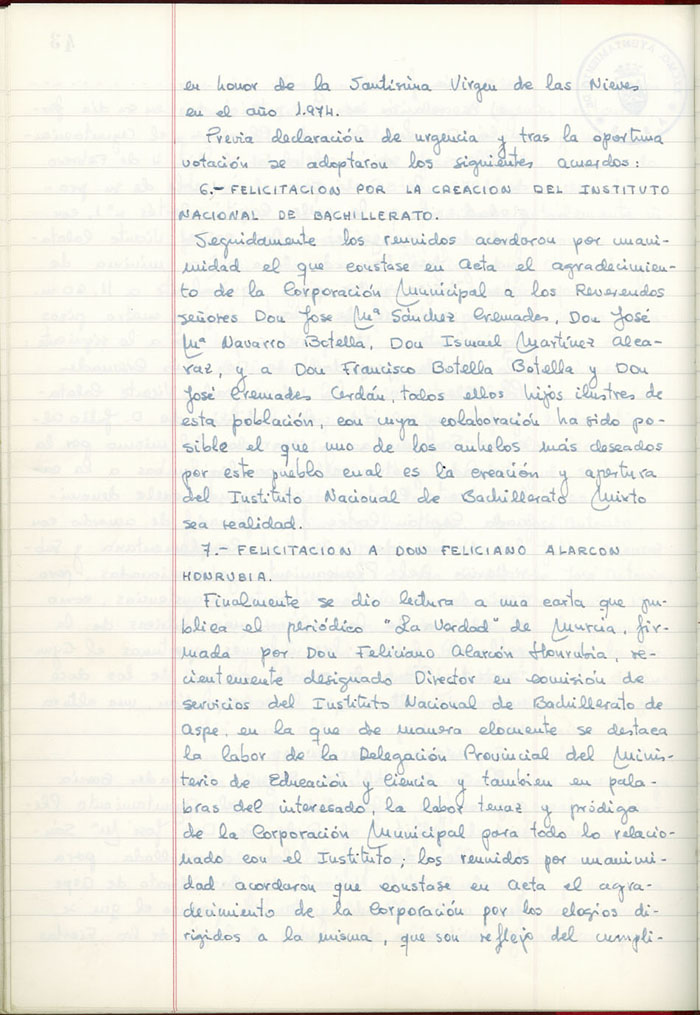 en honor de la Santísima Virgen de las Nieves
en el año 1.974.
Previa declaración de urgencia y tras la oportuna
votación se adoptaron los siguientes acuerdos:
6.- FELICITACION POR LA CREACION DEL INSTITUTO
NACIONAL DE BACHILLERATO.
Seguidamente los reunidos acordaron por unani-
midad el que constase en Acta el agradecimien-
to de la Corporación Municipal a los Reverendos
señores Don Jose Mª Sánchez Cremades, Don José
Mª Navarro Botella, Don Ismael Martínez Alca-
raz, y a Don Francisco Botella Botella y Don
José Cremades Cerdán, todos ellos hijos ilustres de
esta población, con cuya colaboración ha sido po-
sible el que uno de los anhelos más deseados
por este pueblo cual es la creación y apertura
del Instituto Nacional de Bachillerato Mixto
sea realidad.
7.- FELICITACION A DON FELICIANO ALARCON
HONRUBIA.
Finalmente se dio lectura a una carta que pu-
blica el periódico "La Verdad" de Murcia, fir-
mada por Don Feliciano Alarcón Honrubia, re-
cientemente designado Director en comisión de
servicios del Instituto Nacional de Bachillerato de
Aspe, en la que de manera elocuente se destaca
la labor de la Delegación Provincial del Minis-
terio de Educación y Ciencia y tambien en pala-
bras del interesado, la labor tenaz y pródiga
de la Corporación Municipal para todo lo relacio-
nado con el Instituto; los reunidos por unanimi-
dad acordaron que constase en Acta el agra-
decimiento de la Corporación por los elogios di-
rigidos a la misma, que son reflejo del cumpli-